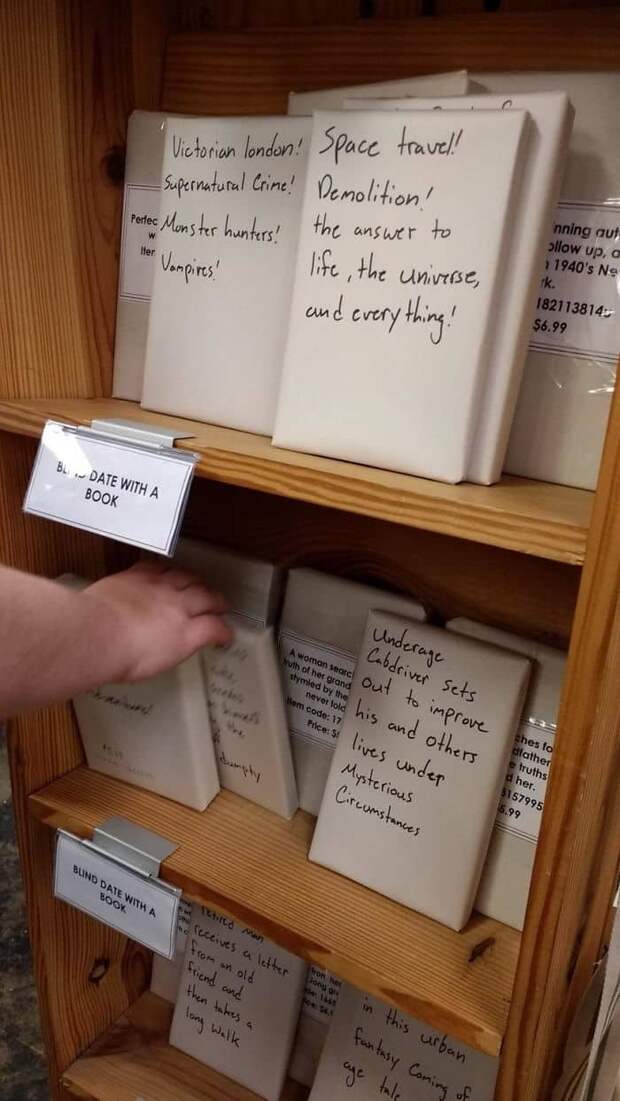 Victorian london!
Supernatural Crime!
Monster hunters!
Vampires!
Space travel!
Demolition!
the answer to
life, the universe,
and everything!
nning aut
ollow up, a
1940's Ne
rk.
$6.99
DATE WITH A
BOOK
A woman searc
uth of her grand
stymied by the
never told
Item code: 17
Price: $
Underage
Cabdriver sets
out to improve
his and others
lives under
Mysterious
Circumstances
ches fo
dfather
e truths
d her.
157995
.99
the
dumpty
BLIND DATE WITH A
BOOK
retired man
receives a letter
from an old
friend and
then takes a
long walk
in this urban
fantasy coming of
age tale